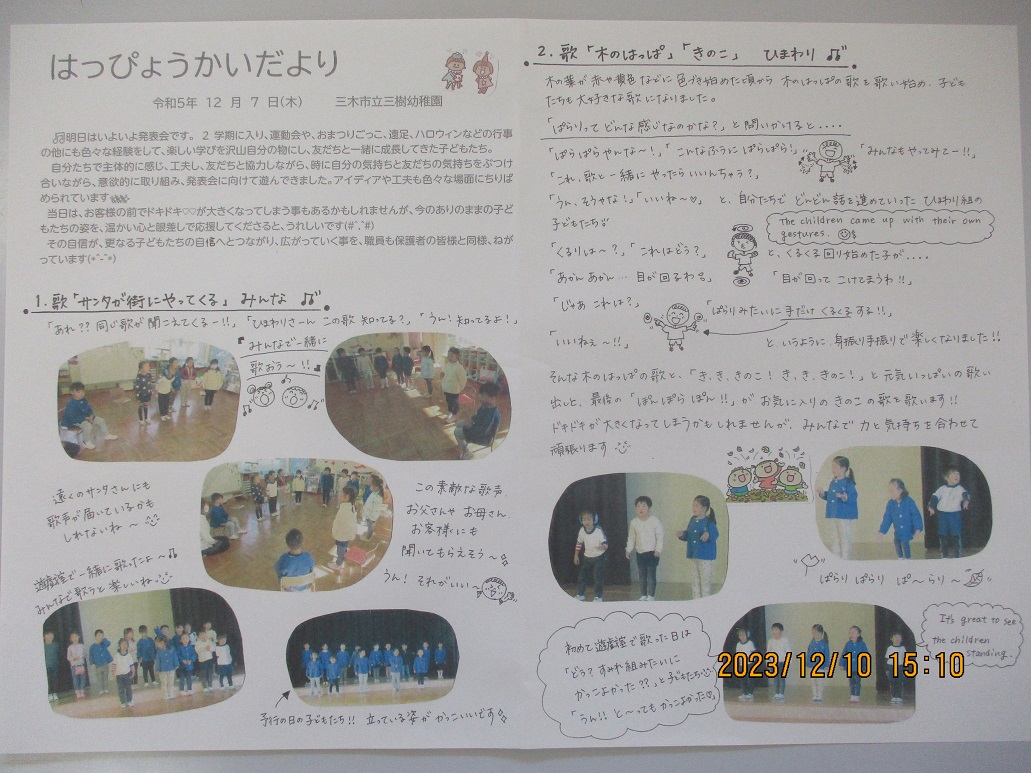 はっぴょうかいだより
令和5年 12 月 7 日(木) 三木市立三樹幼稚園
明日はいよいよ発表会です。 2 学期に入り、運動会や、おまつりごっこ、遠足、ハロウィンなどの行事
の他にも色々な経験をして、楽しい学びを沢山自分の物にし、友だちと一緒に成長してきた子どもたち。
自分たちで主体的に感じ、工夫し、友だちと協力しながら、時に自分の気持ちと友だちの気持ちをぶつけ
合いながら、意欲的に取り組み、発表会に向けて遊んできました。アイディアや工夫も色々な場面にちりば
められています
当日は、お客様の前でドキドキ♡♡が大きくなってしまう事もあるかもしれませんが、今のありのままの子ど
もたちの姿を、温かい心と眼差しで応援してくださると、うれしいです(#^.^#)
その自信が、更なる子どもたちの自信へとつながり、広がっていく事を、職員も保護者の皆様と同様、ねが
っています(*^-^*)
1. 歌「サンタが街にやってくる」 みんな ♫
「あれ?? 同じ歌が聞こえてくるー!!」「ひまわりさーん この歌 知ってる?」「うん! 知ってるよ!」
『みんなで一緒に
歌おう〜!!』
遠くのサンタさんにも
歌声が届いているかも
しれないね〜
この素敵な歌声
お父さんや お母さん
お客様にも
聞いてもらえそう〜
うん! それがいい〜
遊戯室で一緒に歌ったよ〜♪
みんなで歌うと楽しいね
予行の日の子どもたち!! 立っている姿が かっこいいです
2. 歌「木のはっぱ」「きのこ」 ひまわり ♫
木の葉が赤や黄色などに色づき始めた頃から 木のはっぱの歌を歌い始め、子ども
たちも大好きな歌になりました。
「ぱらりって どんな感じなのかな?」と問いかけると....
「ぱらぱらやんな〜!」「こんなふうにぱらぱら!」 「みんなもやってみてー!!」
「これ、歌と一緒にやったらいいんちゃう?」
「うん、そうやな!」「いいね〜♡」 と、自分たちで どんどん話を進めていった ひまわり組の
子どもたち
The children came up with their own
gestures.
「くるりは〜?」「これはどう?」 と、くるくる回り始めた子が....
「あかんあかん… 目が回るわ」 「目が回って こけてまうわ!!」
「じゃあ これは?」 「ぱらりみたいに手だけくるくるする!!」
「いいねぇ〜!!」 と、いうように、身振り手振りで楽しくなりました!!
そんな木のはっぱの歌と、「き、き、きのこ! き、き、きのこ!」と元気いっぱいの歌い
出しと、最後の「ぽんぽらぽん!!」がお気に入りのきのこの歌を歌います!!
ドキドキが大きくなってしまうかもしれませんが、みんなで力と気持ちを合わせて
頑張ります
ぱらり ぱらり ぱ〜らり〜
初めて遊戯室で歌った日は
「どう? すみれ組みたいに
かっこよかった??」と子どもたち
「うん!! と〜ってもかっこよかった♡」
It's great to see
the children
standing.
2023/12/10 15:10